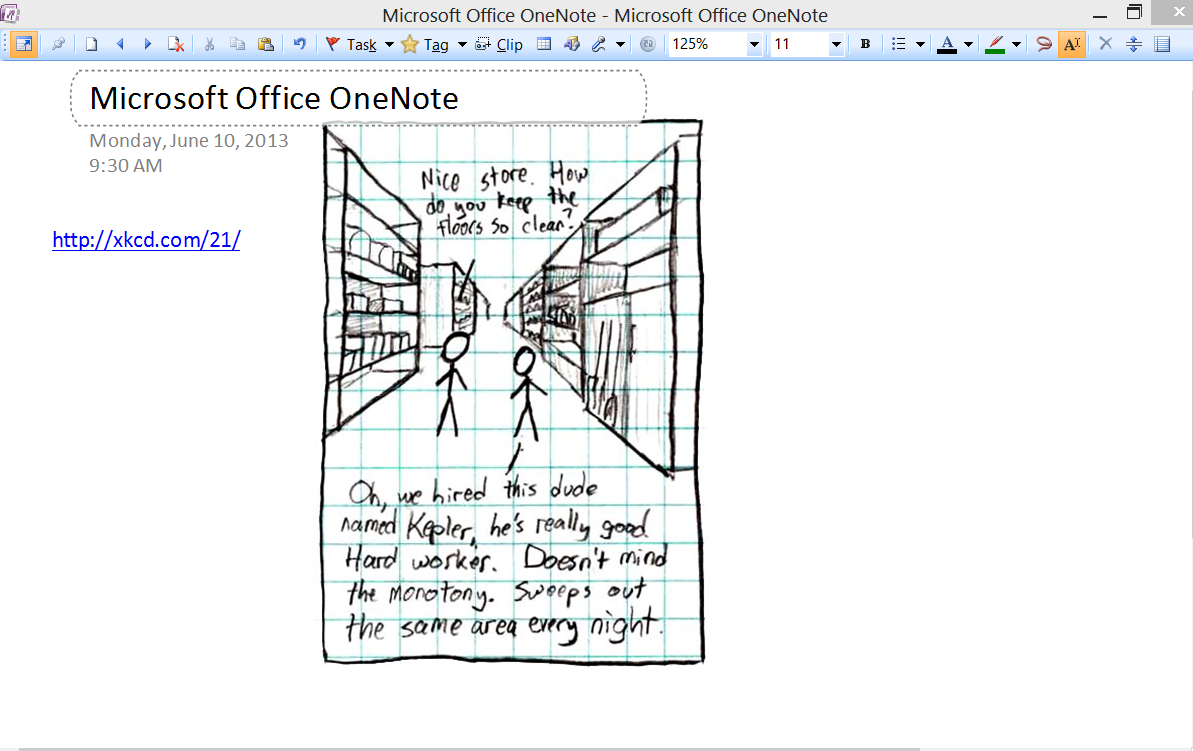 Microsoft Office OneNote - Microsoft Office OneNote
Task Tag Clip 125% 11 B A A
Microsoft Office OneNote
Monday, June 10, 2013
9:30 AM
http://xkcd.com/21/
Nice store. How
do you keep the
floors so clean?
Oh, we hired this dude
named Kepler, he's really good.
Hard worker. Doesn't mind
the monotony. Sweeps out
the same area every night.